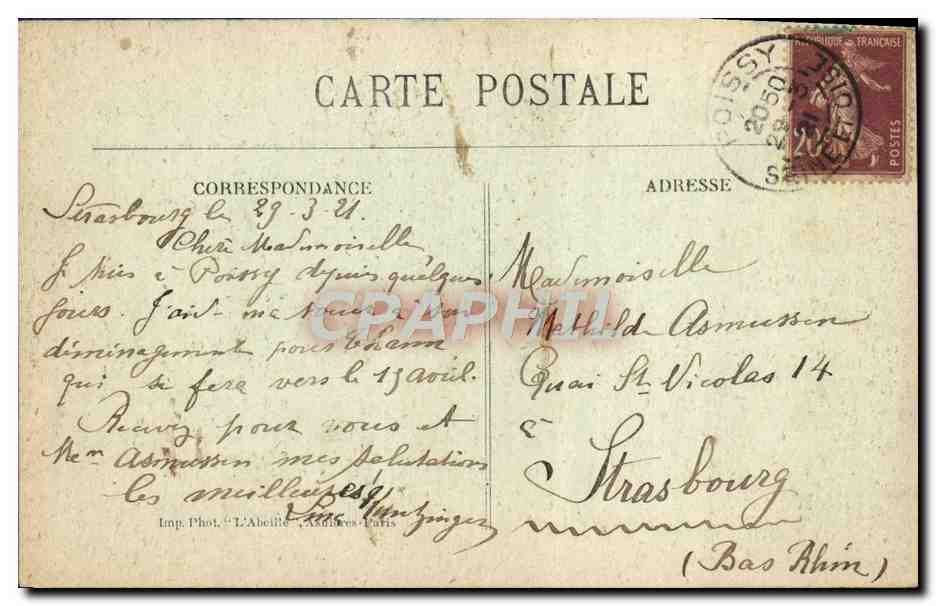 CARTE POSTALE
CORRESPONDANCE
Strasbourg le 29-3-21.
Chère Mademoiselle
Je suis à Poissy depuis quelques
jours. J'aide ma soeur à son
déménagement pour Thann
qui se fera vers le 15 Avril.
Recevez pour vous et
Me Asmussen mes salutations
les meilleures
Line Huntzinger
Imp. Phot. "L'Abeille" Asnières-Paris
ADRESSE
Mademoiselle
Mathilde Asmussen
Quai St Nicolas 14
à
Strasbourg
(Bas Rhin)
POISSY
20 50
29
21
SEINE ET OISE
REPUBLIQUE FRANÇAISE
POSTES
CPAPHIL